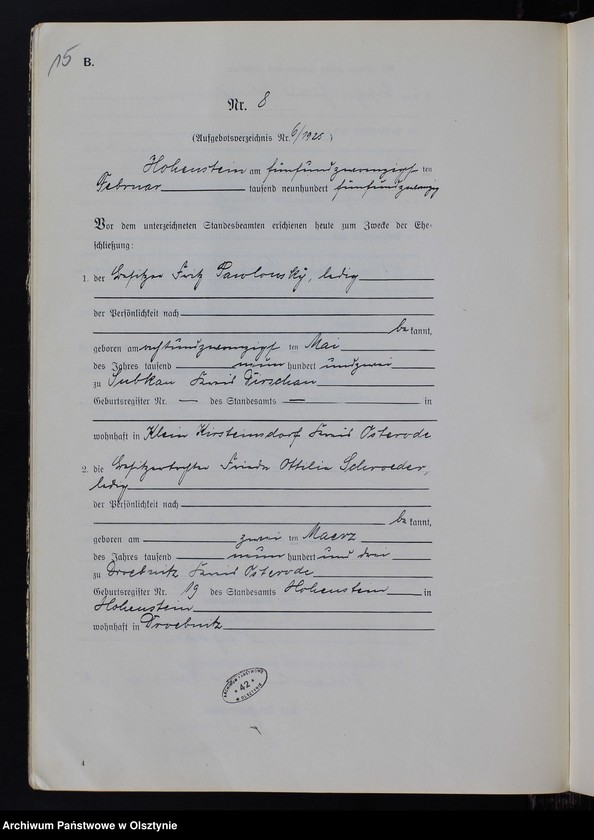 15 B.
Nr. 8
(Aufgebotsverzeichnis Nr. 6/1925)
Hohenstein am fünfundzwanzigsten
Februar tausend neunhundert fünfundzwanzig
Vor dem unterzeichneten Standesbeamten erschienen heute zum Zwecke der Ehe-
schließung:
1. der Besitzer Fritz Pawlowsky, ledig
der Persönlichkeit nach
bekannt,
geboren am achtundzwanzigsten Mai
des Jahres tausend neunhundert und zwei
zu Subkau Kreis Dirschau
Geburtsregister Nr. — des Standesamts — in
wohnhaft in Klein Kirsteinsdorf Kreis Osterode
2. die Besitzertochter Frieda Ottilie Schroeder,
ledig
der Persönlichkeit nach
bekannt,
geboren am zweiten Maerz
des Jahres tausend neunhundert und drei
zu Droebnitz Kreis Osterode
Geburtsregister Nr. 19 des Standesamts Hohenstein in
Hohenstein
wohnhaft in Droebnitz
ARCHIWUM PAŃSTWOWE
* 42 *
W OLSZTYNIE
4
Archiwum Państwowe w Olsztynie